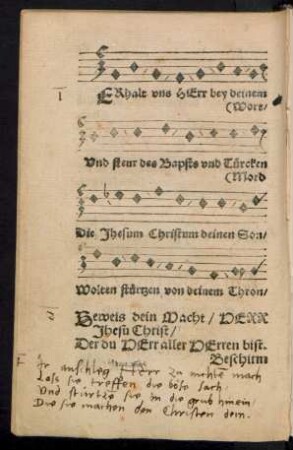 1
ERhalt vns HErr bey deinem
(Wort/
Vnd steur des Bapsts vnd Türcken
(Mord
Die Jhesum Christum deinen Son/
Wolten stürtzen von deinem Thron/
2
Beweis dein Macht / HERR
Jhesu Christ/
Der du HErr aller HErren bist.
Beschirm
Ir anschleg HErr zu nichte mach
Las sie treffen die böse sach,
Und stürtze sie in die grub hinein,
Die sie machen den Christen dein.